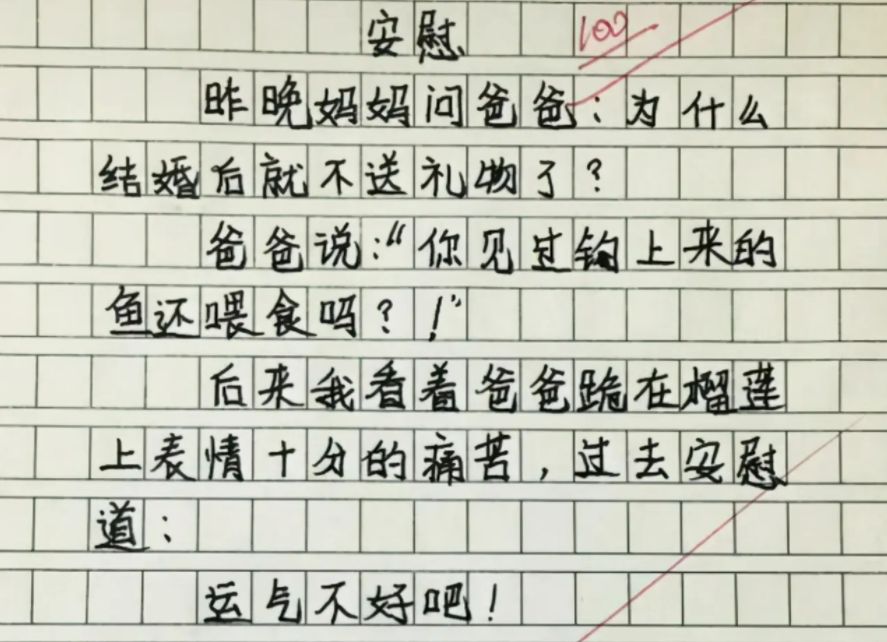 安慰 100
昨晚妈妈问爸爸：为什么
结婚后就不送礼物了？
爸爸说：“你见过钩上来的
鱼还喂食吗？！”
后来我看着爸爸跪在榴莲
上表情十分的痛苦，过去安慰
道：
运气不好吧！